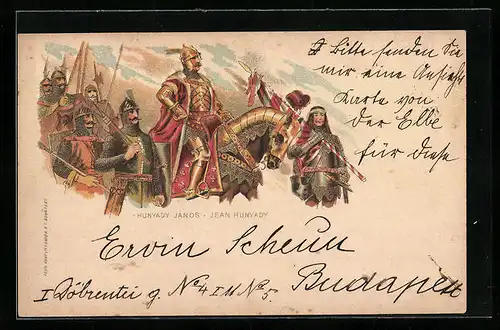 Bitte senden Sie
mir eine Ansicht
Karte von
der Elbe
für diese
HUNYADY JANOS - JEAN HUNYADY
Ervin Scheun
Budapest
I Döbrentei g. No 4 I No 5.